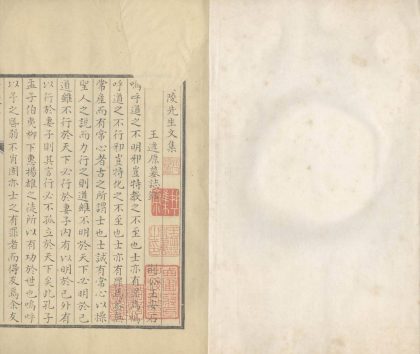 陵先生文集
王逢原墓誌銘
王安石
嗚呼道之不明邪豈特教之不至也士亦有罪焉嗚
呼道之不行邪豈特化之不至也士亦有罪焉蓋無
常產而有常心者古之所謂士也士誠有常心以操
聖人之說而力行之則道雖不明於天下必明於己
道雖不行於天下必行於妻子內有以明於己外有
以行於妻子則其言行必不孤立於天下矣此孔子
孟子伯夷柳下惠揚雄之徒所以有功於世也嗚呼
以予之昏弱不肖固亦士之有罪者而得友焉余友